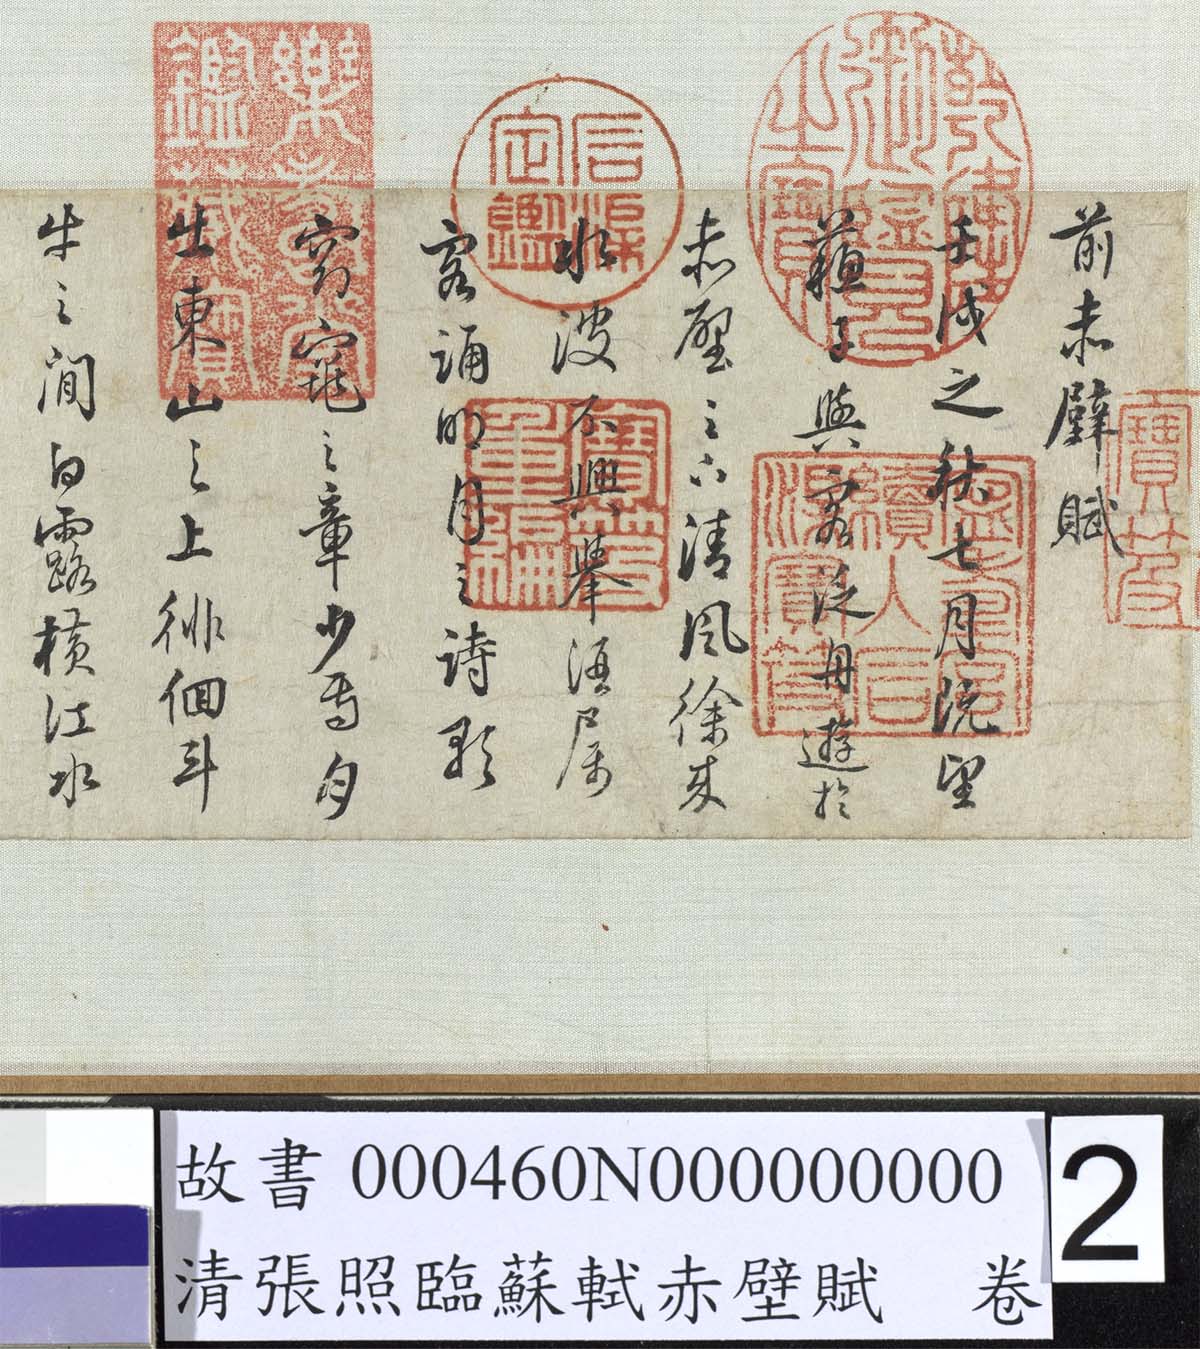 寶笈
乾隆御覽之寶
寧壽宮續入石渠寶笈
石渠定鑑
寶笈重編
樂壽堂鑑藏寶
前赤壁賦
壬戌之秋七月既望
蘇子與客泛舟遊於
赤壁之下清風徐來
水波不興舉酒属
客誦明月之詩歌
窈窕之章少焉月
出東山之上徘徊斗
牛之間白露橫江水
故書 000460N000000000
清張照臨蘇軾赤壁賦 卷
2